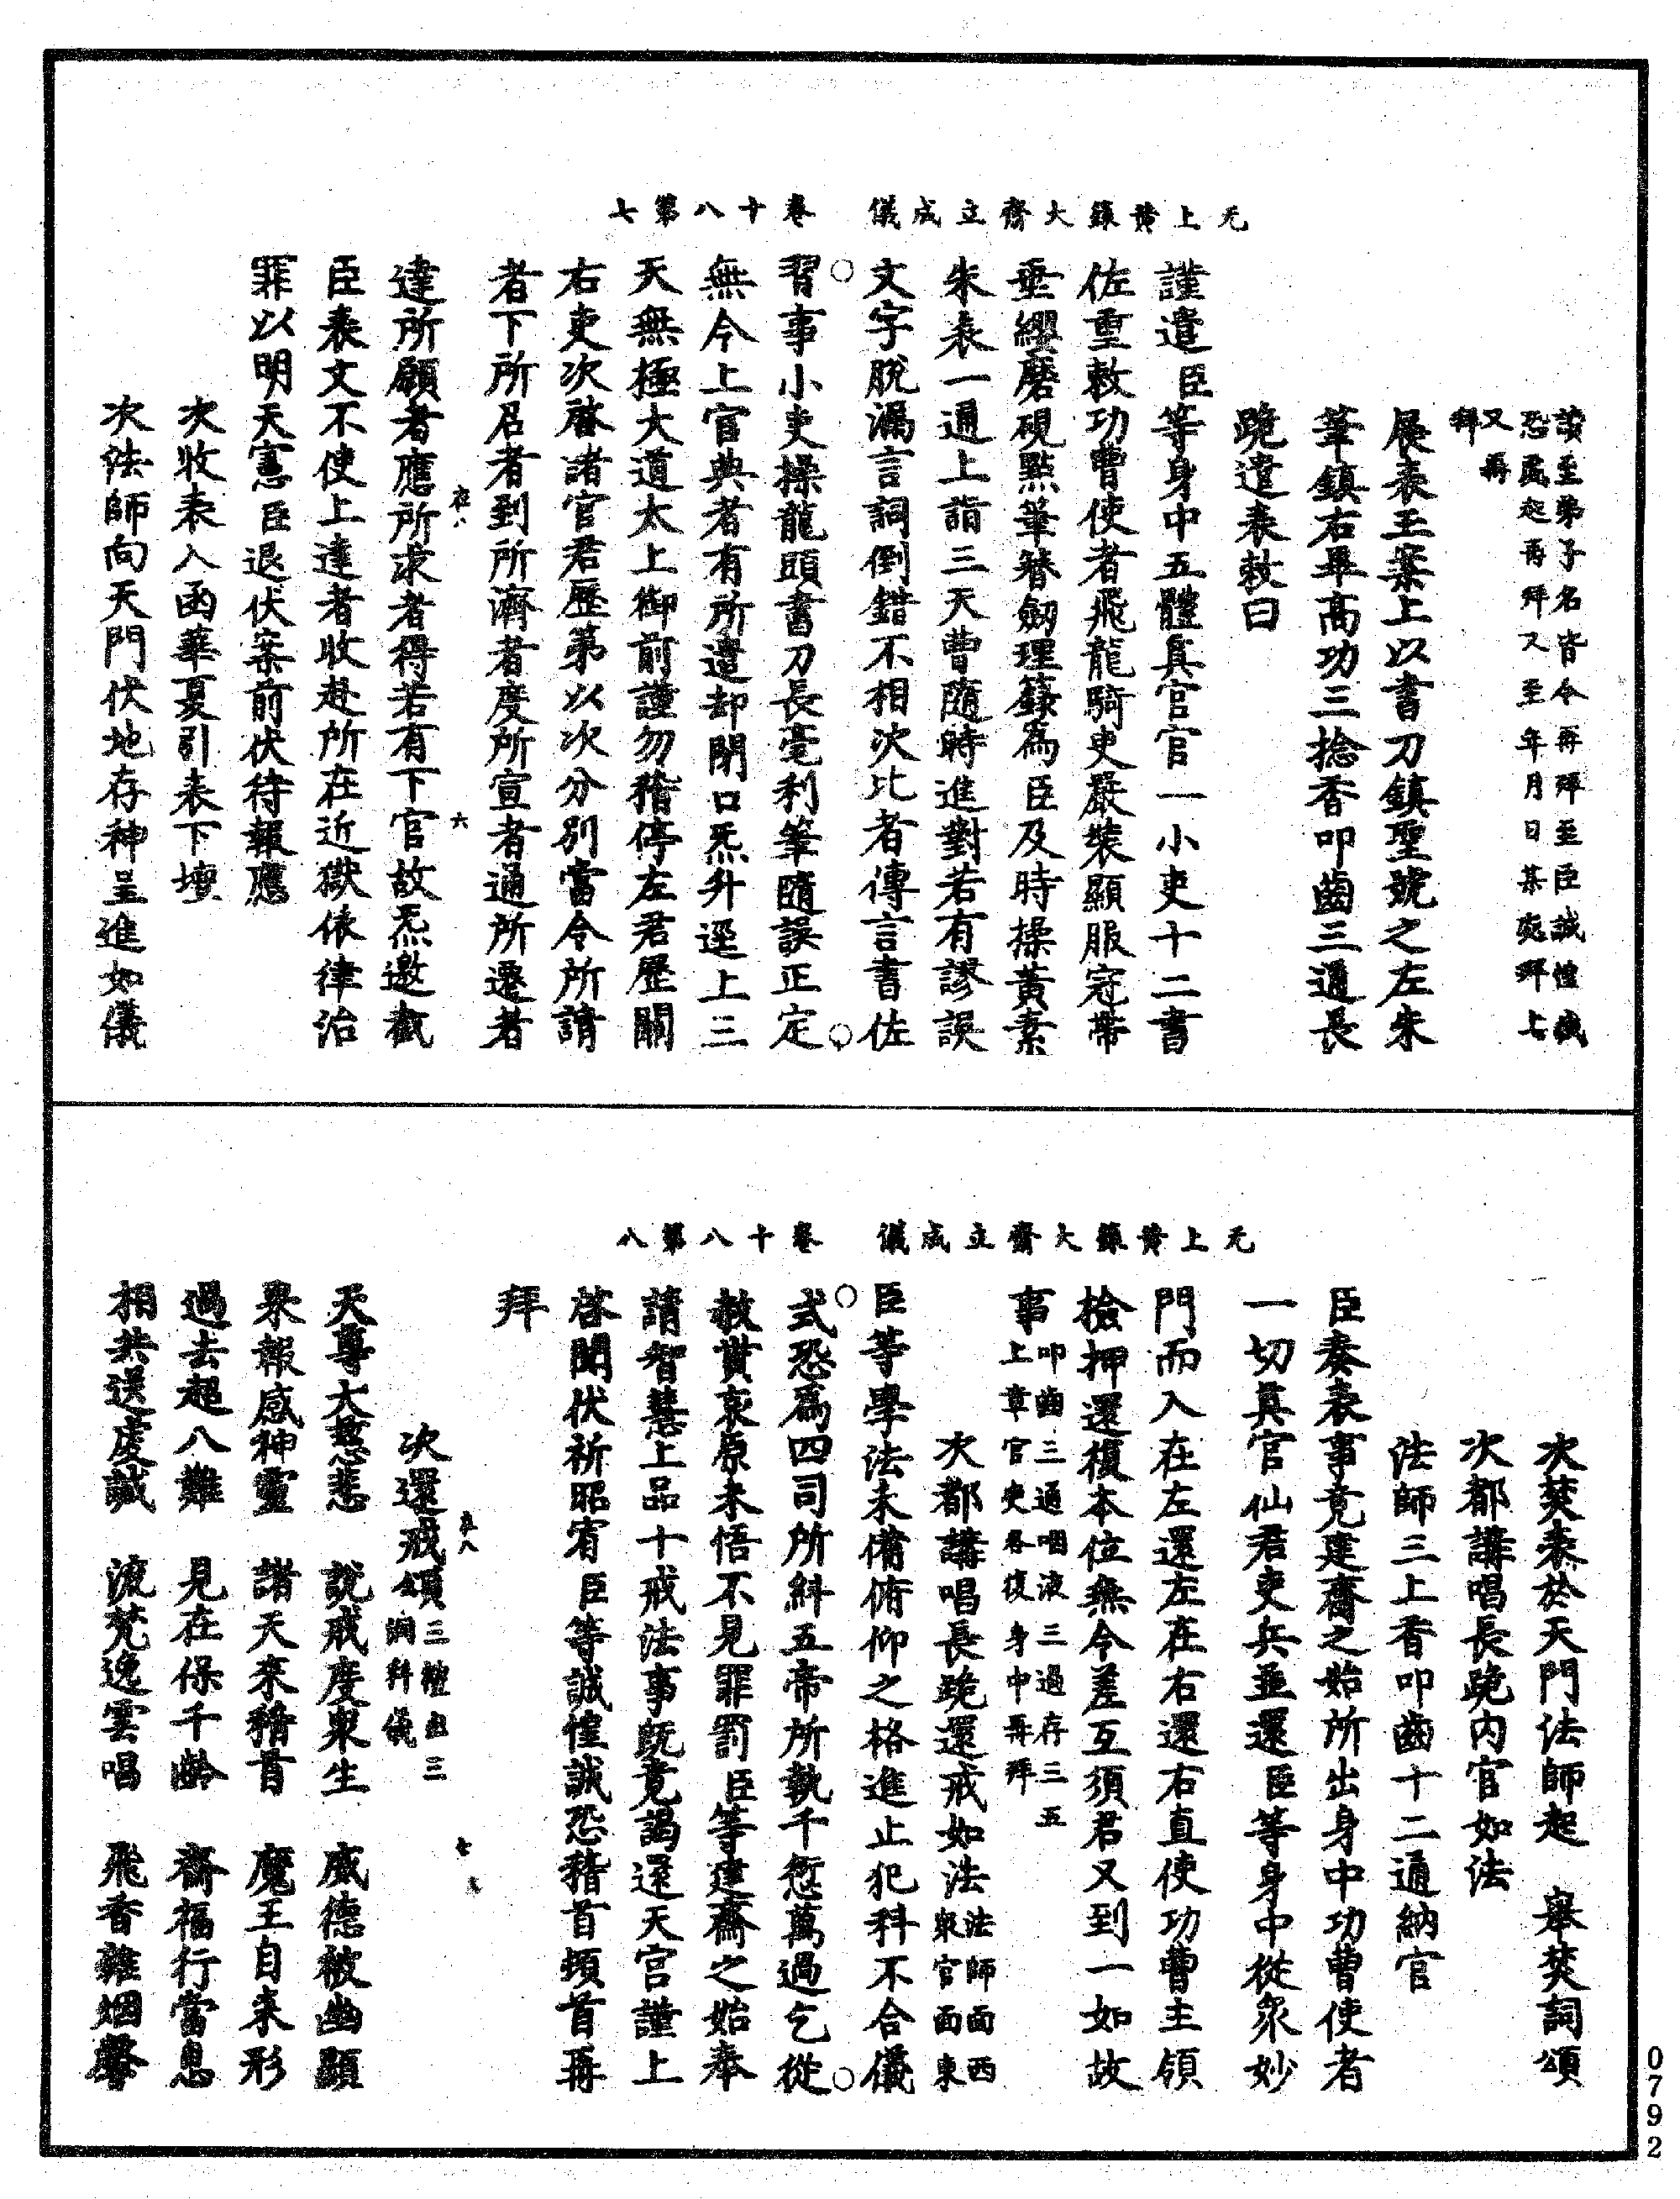 無上黃籙大齋立成儀　卷十八第七
讀至弟子名皆令再拜至臣誠惶誠
恐處起再拜又至年月日某處拜上
又再
拜
展表玉案上以書刀鎮聖號之左朱
筆鎮右畢高功三捻香叩齒三通長
跪遣表敕曰
謹遣臣等身中五體真官官一小吏十二書
佐重敕功曹使者飛龍騎吏嚴裝顯服冠帶
垂纓磨硯點筆簪劒理籙為臣及時操黃素
朱表一通上詣三天曹隨時進對若有謬誤
文字脫漏言詞倒錯不相次比者傳言書佐
習事小吏操龍頭書刀長毫利筆隨誤正定
無令上官典者有所遣却閉口炁升逕上三
天無極大道太上御前謹勿稽停左君歷關
右吏次啓諸官君歷第以次分別當令所請
者下所召者到所濟者度所宣者通所遷者
達所願者應所求者得若有下官故炁邀截
臣表文不使上達者收赴所在近獄依律治
罪以明天憲臣退伏案前伏待報應
次收表入函華夏引表下壇
次法師向天門伏地存神呈進如儀
無上黃籙大齋立成儀　卷十八第八
次焚表於天門法師起　舉焚詞頌
次都講唱長跪内官如法
法師三上香叩齒十二通納官
臣奏表事竟建齋之始所出身中功曹使者
一切真官仙君吏兵並還臣等身中從衆妙
門而入在左還左在右還右直使功曹主領
檢押還復本位無令差互須君又到一如故
事叩齒三通咽液三過存三五
上章官吏各復身中再拜
次都講唱長跪還戒如法法師面西
衆官面東
臣等學法未備俯仰之格進止犯科不合儀
式恐為四司所糾五帝所執千愆萬過乞從
赦貰哀原未悟不見罪罰臣等建齋之始奉
請智慧上品十戒法事既竟謁還天宫謹上
啓聞伏祈昭宥臣等誠惶誠恐稽首頓首再
拜
次還戒頌三禮出三
洞科儀
天尊大慈悲　說戒度衆生　威德被幽顯
果報感神靈　諸天來稽首　魔王自来形
過去超八難　見在保千齡　齋福行當息
相共送虔誠　流梵逸雲唱　飛香雜烟馨
0792